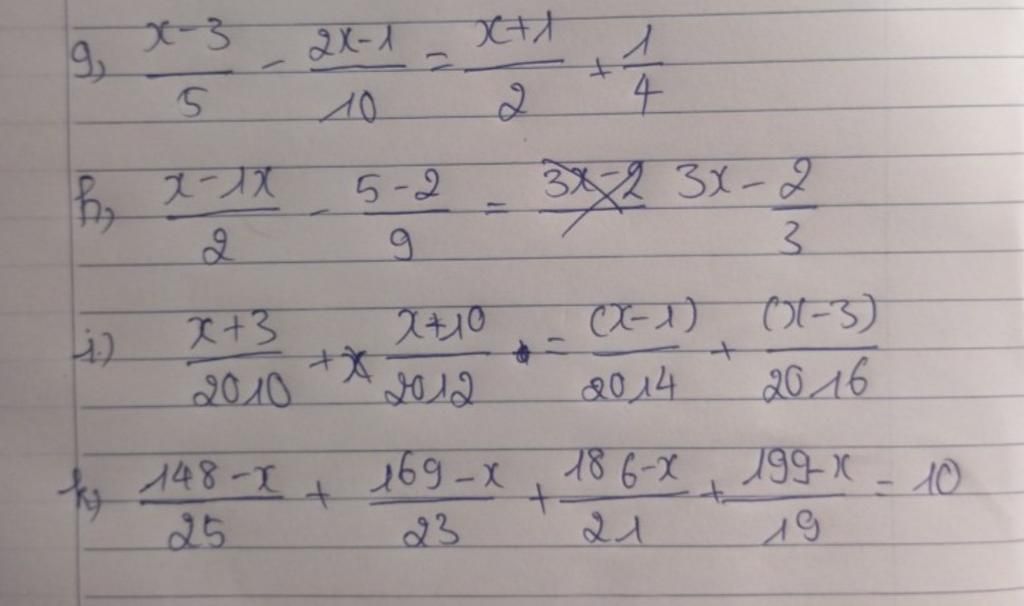 g, (x-3)/5 - (2x-1)/10 = (x+1)/2 + 1/4
h, (x-1x)/2 - (5-2)/9 = 3x - 2/3
i.) (x+3)/2010 + (x+10)/2012 = (x-1)/2014 + (x-3)/2016
k, (148-x)/25 + (169-x)/23 + (186-x)/21 + (199-x)/19 = 10